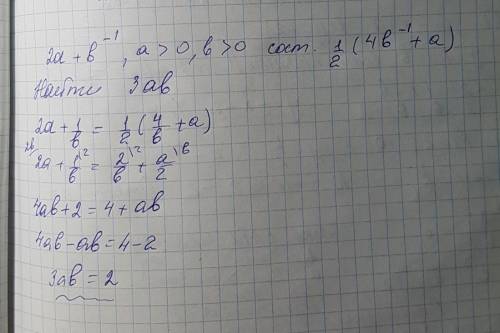 2a + b⁻¹, a > 0, b > 0 сост. 1/2 (4b⁻¹ + a)
Найти 3ab
2a + 1/b = 1/2 (4/b + a)
2b\ 2a + 1/b \2 = 2/b \2 + a/2 \b
4ab + 2 = 4 + ab
4ab - ab = 4 - 2
3ab = 2